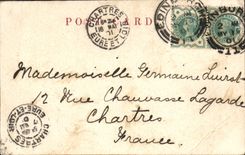 POST CARD
CHARTRES
EURE-ET-LOIR
EDINBURGH
Mademoiselle Germaine
12 Rue Chauvasse Lagarde
Chartres
France
CHARTRES
EURE-ET-LOIR